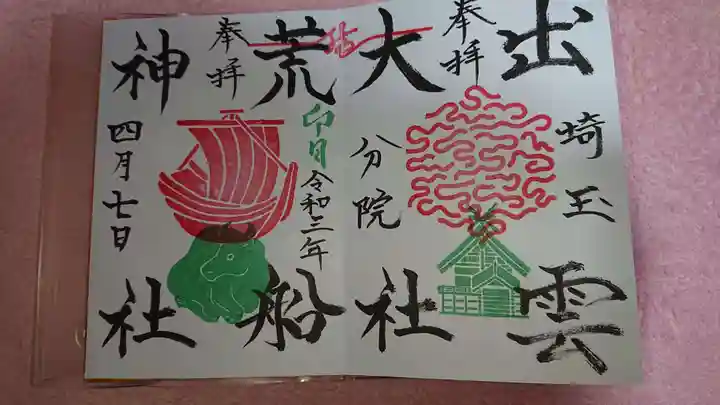 出雲
埼玉
奉拝
大社
分院
荒船
卯月
令和三年
奉拝
神社
四月七日